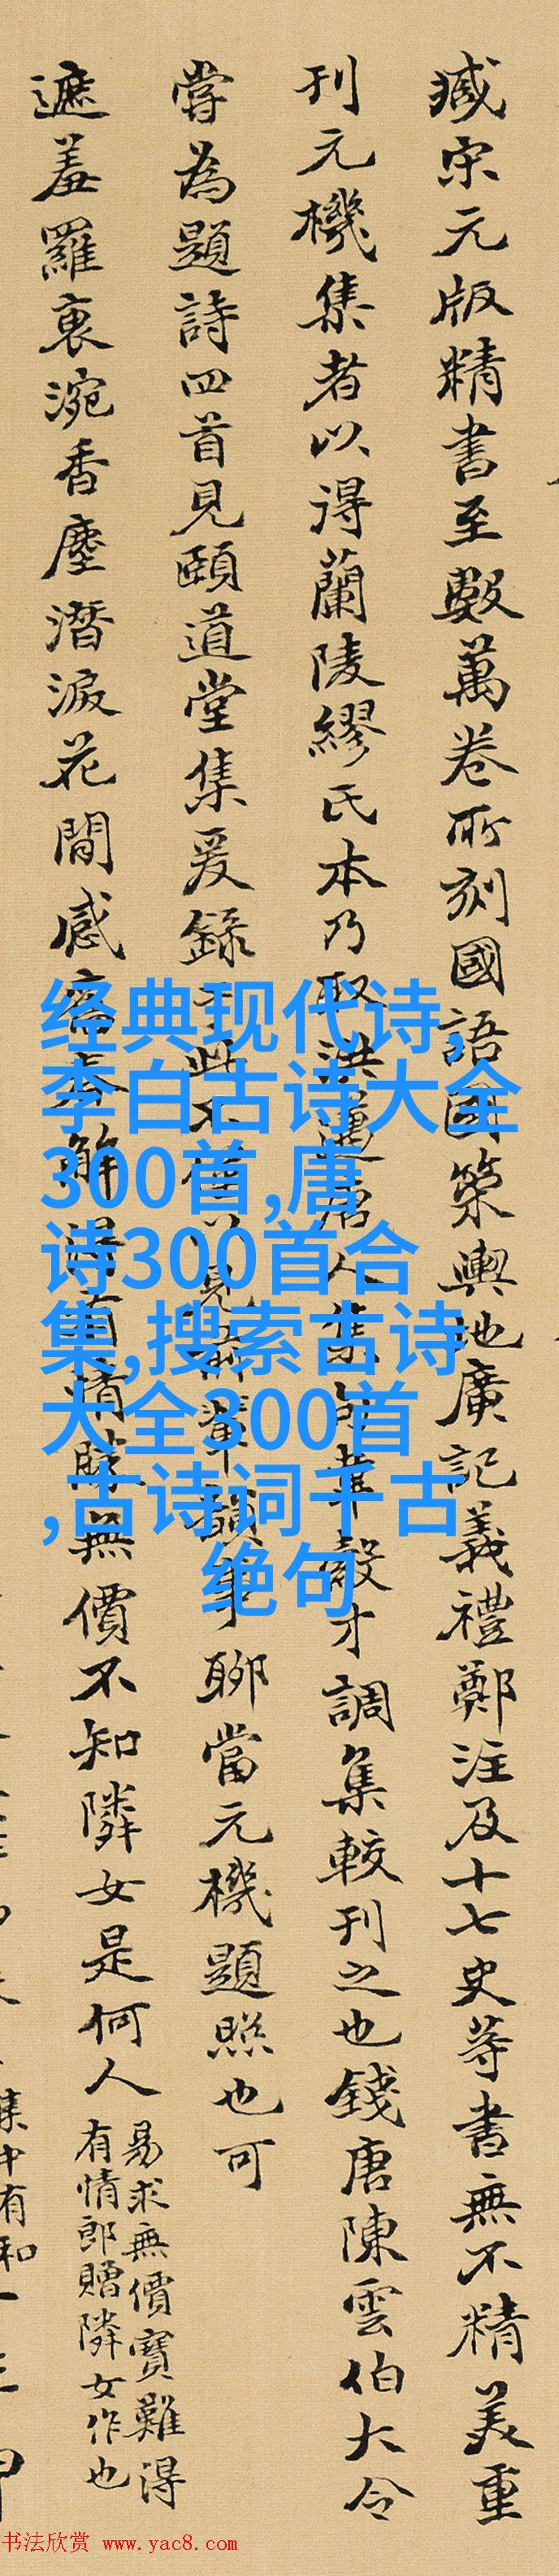 臧宋元版精書至數萬卷所刻國語國策輿地廣記義禮鄭注及十七史等書無不精美重
刊元機集者以得蘭陵繆氏本乃取洪邁唐人集句韋縠才調集較刊之也錢唐陳雲伯大令
嘗為題詩四首見頤道堂集爰錄於此不僅以見前輩韻事聊當元機題照也可
遮羞羅裏涴香塵潛淚花間感
解得有情勝無價不知隣女是何人
易求無價寶難得
有情郎贈隣女作也
集中有和一
经典现代诗,
李白古诗大全
300首,唐
诗300首合
集,搜索古诗
大全300首
,古诗词千古
绝句
书法欣赏 www.yac8.com